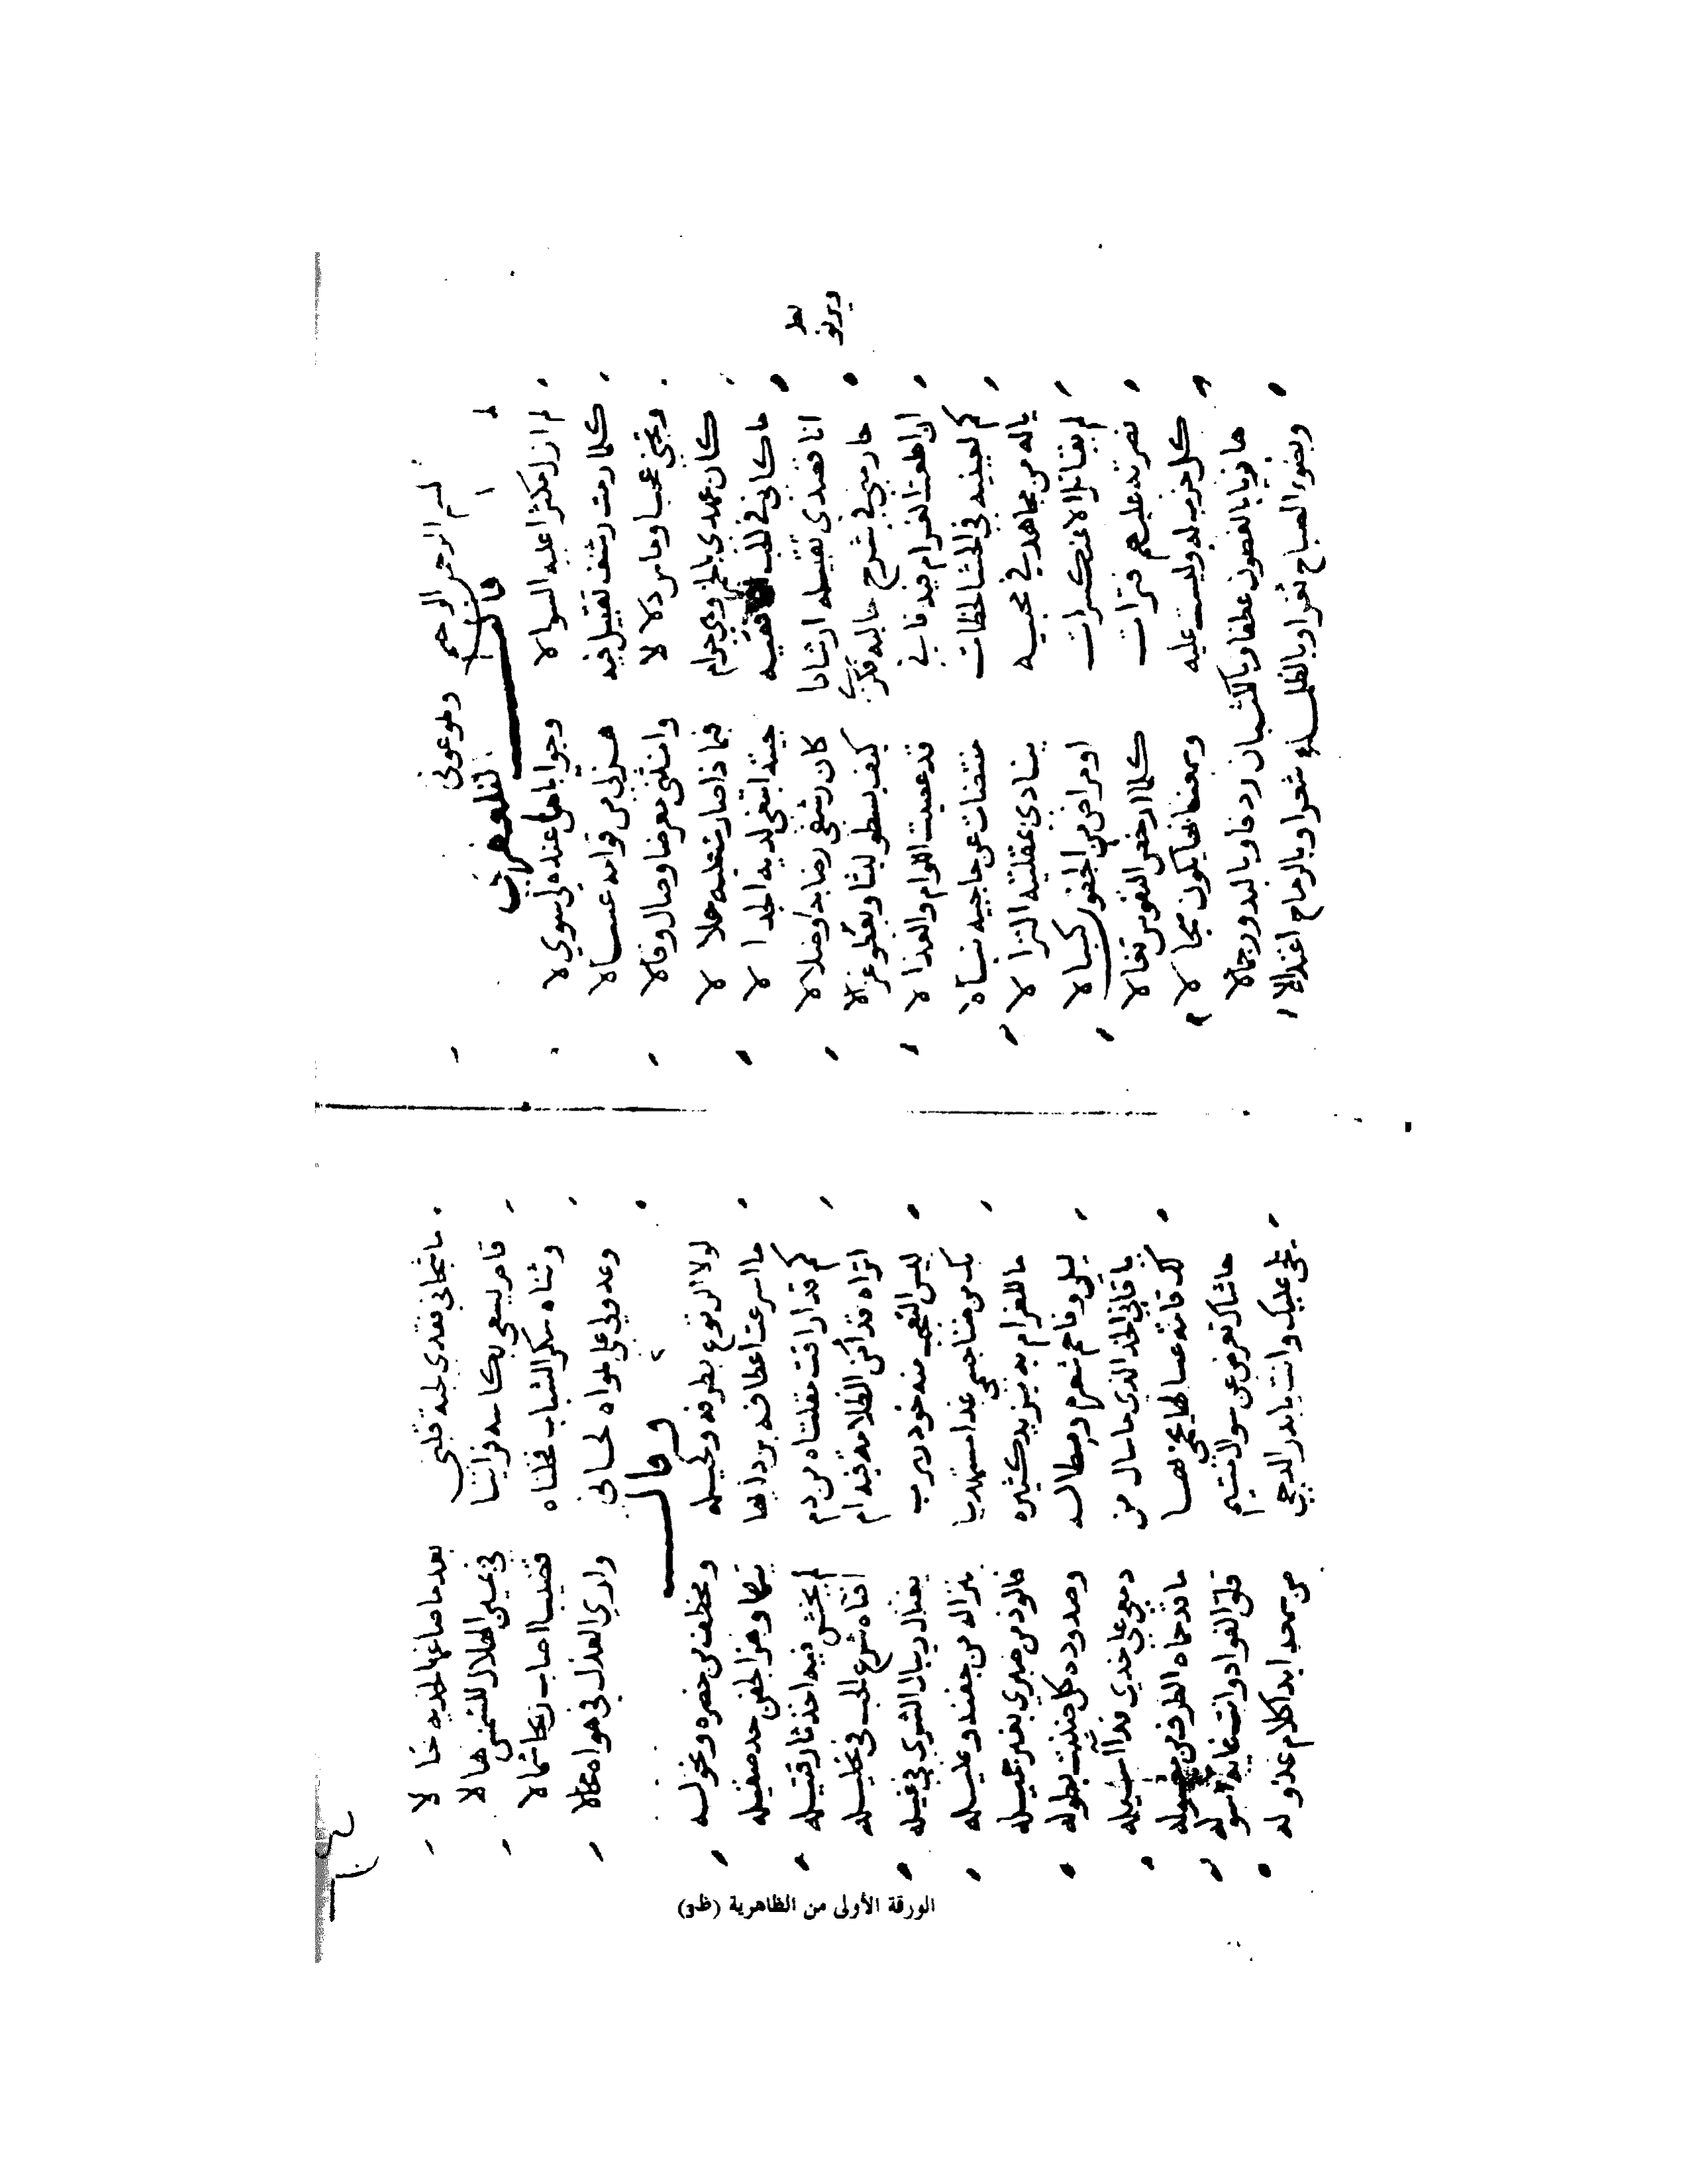 بسم الله الرحمن الرحيم وهو عوني
قال التلعفري
لم ازل مكثرا عليه السوالا وجوابا ما عنده لي سوي لا
كلما رمت رشف تقبيل فيه هز لي من قوامه عسالا
وتجني عجبا وماس دلالا وانثني معرضا وصال وقالا
كان عهدي بالخمر وهي حرام فبماذا صارت عليه حلالا
ما كاني في الحب فقيه جيت ابتغي لديه الجدالا
انا قصدي تقبيله ارشادا كان رشفي رضابه او ضلالا
حار مني في شرح حاليه فكري كيف يسطو ليثا ويعطو غزالا
ان اطعت الغرام فيه فاني قد عصيت اللوام والعذالا
كم لعينيه في الحشا لحظات منتضات عن حاجبيه نبالا
ياله من مجاهد في محبيه ينادي بمقلتيه النزالا
لم يقتالا لا عن كسرات او مراض من الجفون كسالا
نصرته عليهم فترات كلما ارخص النفوس تغالا
كل حزب له وليست عليه وبمعناها يكون سجالا
هازيا بالغصون عطفا وبالكثبان ردفا وبالبدور جمالا
وبضوء الصباح ثغرا وبالظلماء شعرا وبالرماح اعتدالا
ما شجاني فقدي لحبة قلبي بعدما صاغها لخديه خالا
قام يسعي بكاسه فراينا في يمين الهلال للشمس هالا
وثناه سكر الشباب فخلناه قضيبا اصاب ريحا شمالا
وعدولي علي هواه لحاني واري العذل في هواه محالا
وقال
لولا الرنوع بطرفه وكحيله ومخطف من خصره ونحوله
ما اسرعت اعطافه بردائها تيها وهز الجفن حد صقيله
كم قد اراقت مقلتاه من دم لم يخش فيه اخذ ثار قتيله
اتراه قد أمن الظلامة فيه ام افتاه شرع الحب في تحليله
ليس التعجب منه خود ربرب يغتال ريبال الشري في غيله
بك من تناجسمي غدا مستهديا بنزاله من جفنه وعليله
ما للغرام به يزيد كثيره فالوذ من صبري بغير جميله
ليل وفاحم شعره ومطاله وصدوده كل جننت بطوله
يا قاتلي الخد الذي ما سال من دمعي علي خدي فداآسيله
لك قامة عسالها يحمي لها ما قد حماه الطرف من معسوله
حاشاك تعرض عن سوال متيم قلق الفواد وانت غاية سوله
يملي عليك وانت يا بدر الدجي من سمحه ابدا كلام عذوله
الورقة الأولى من الظاهرية (ظ3)